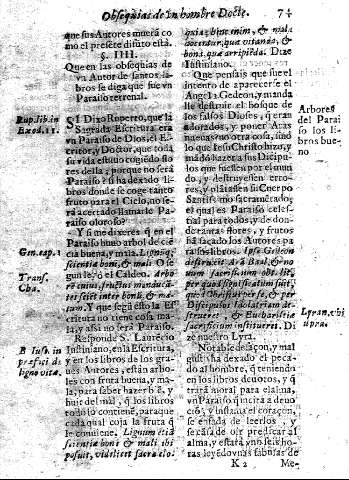 Obsequias de un hombre Docto. 74
que sus Autores muerá co
mo el presẽte difuto está.
§. IIII.
Que en las obsequias de
vn Autor de santos libros
se diga que fue vn
Paraiso terrenal.
Rup. lib. in
Exod. 11.
DIxo Ruperto, que la
Sagrada Escritura era
vn Paraiso de Dios, el Escritor,
y Doctor, que toda
su vida estuuo cogiẽdo flores
della; porque no será
Paraiso? si ha dexado libros
donde se coge tanto
fruto para el Cielo, no será
acertado llamarle Paraiso
oloroso?
Y si me dixerẽ q̃ en el
Paraiso huuo arbol de ciẽcia
buena, y mala. Lignũ
scientiæ boni, & mali.
Gen. cap. 2
Trans.
Cha.
el Caldeo. Arbore
cuius fructus manducantes
sciẽt inter boni, & malum.
Y que segũ esto la Escritura
no tiene cosa mala,
y assi no será Paraiso.
Responde S. Laurẽcio
B. Iust. in
ligno vitæ.
Iustiniano, en la Escritura,
y en los libros de los graues
Autores, están arboles
con fruta buena, y mala,
para saber hazer bíẽ, y
huir del mal, q̃ los libros
todo lo contiene, para que
cada qual coja la fruta q̃
le conuiene. Lignum etiã
scientiæ boni & mali ibi
posuit, videlicet sacra elo-
quia: hinc enim, & mali
docentur, quæ vitanda, &
boni, quæ arripiẽda. Dize
Iustiniano.
Que pensais que fue el
intento de aparecerse el
Angel a Gedeon, y mandalle
destruir el bosque de
los falsos Dioses, q̃ eran
adorados, y poner Aras
Arboles
del Parai
so los li-
bros bue-
no
nueuas; no otra cosa, sinó
lo que Iesu Christo hizo, y
mádó hazer a sus Dicipulos
que fuessen por el mundo,
y destruyessen errores,
y plátassen su Cuerpo
Santissimo sacramẽtado;
el qual es Paraiso celestial
para todos, y de donde
tantas flores, y frutos
ha sacado los Autores para
sus libros. Ipse Gedeon
destruxit Arã Baal, & nouum
sacrificium obt. lit,
per quod significatum fuit,
quod Christus per se, & per
Discipulos Idolatriam destrueret,
& Eucharistiæ
sacrificium institueret. Dize
nuestro Lyra.
Lyran. vbi
supra.
Notable dãçon, y mal
gusto ha dexado el pecado
al hombre, q̃ teniendo
en los libros deuotos, y q̃
trata moral para el alma,
vn Paraiso q̃ incita a deuoció,
y inflama el coraçon,
se enfada de leerlos, y
se cãsa de oir predicar al
alma, y estará vno seis horas
leyẽdo vnas fabulas de
K 2 Me-